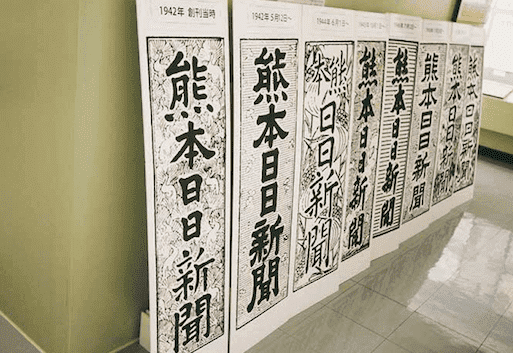 1942年 創刊当時
熊本日日新聞
1942年5月12日〜
熊本日日新聞
1944年6月1日〜
熊本
日日新聞
熊本日日新聞
熊本日日新聞
熊本日日新聞
熊本日日新聞
熊本日日新聞